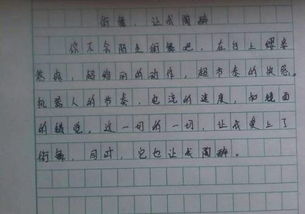 街舞，让我陶醉
你不会陌生街舞吧，在台上绿朵
表演，超难间的动作，超节奏的快感，
机器人的节奏，电流的速度，和镜面
的错觉，这一切的一切，让我爱上了
街舞，同时，它也让我陶醉。